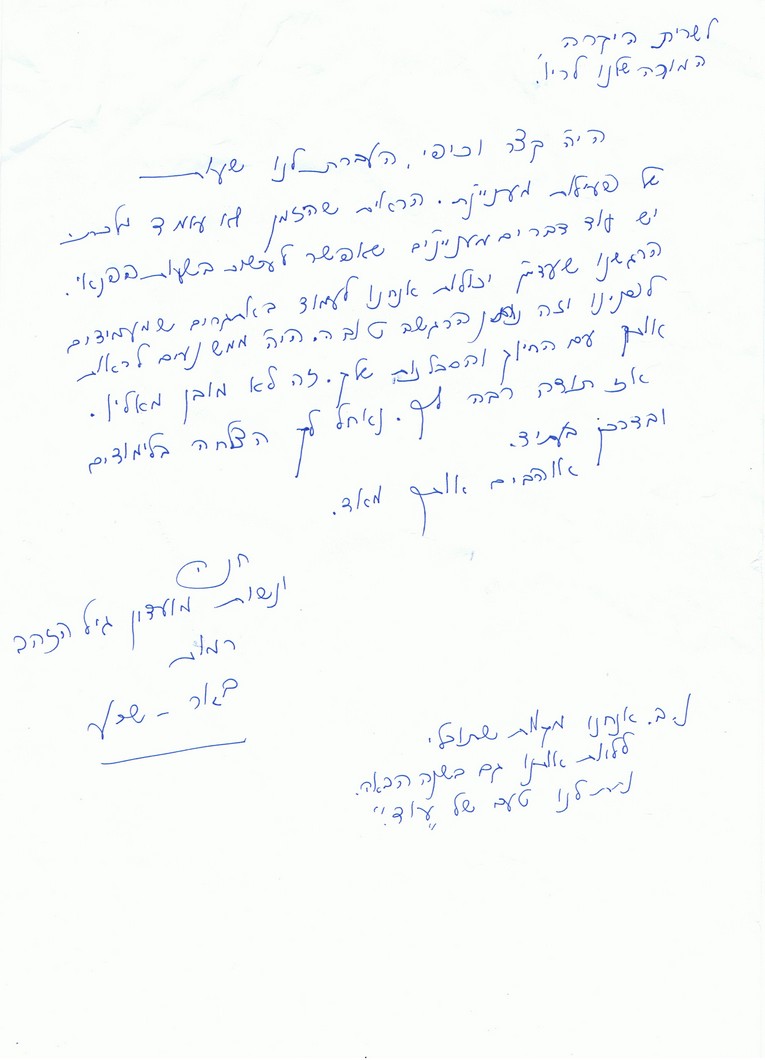 לשרית היקרה
המורה שלנו לריו.
היה קצר וכיפי, העברת לנו שעות
של פעילות מעניינת. הראית שהזמן לא עומד מלכת.
יש עוד דברים מעניינים שאפשר לעשות בשעות הפנאי.
הרגשנו שעדיין יכולות אנחנו לעמוד באתגרים שמעמידים
לפנינו וזה נותן הרגשה טובה. היה ממש נעים לראות
אותך עם החיוך והסבלנות שלך. זה לא מובן מאליו.
אז תודה רבה לך. נאחל לך הצלחה בלימודים
ובדרכך בעתיד.
אוהבים אותך מאד.
חני
ונשות מועדון גיל הזהב
רמות
באר - שבע
נ.ב. אנחנו מקוות שתוכלי
ללוות אותנו גם בשנה הבאה.
נתת לנו טעם של "עוד"